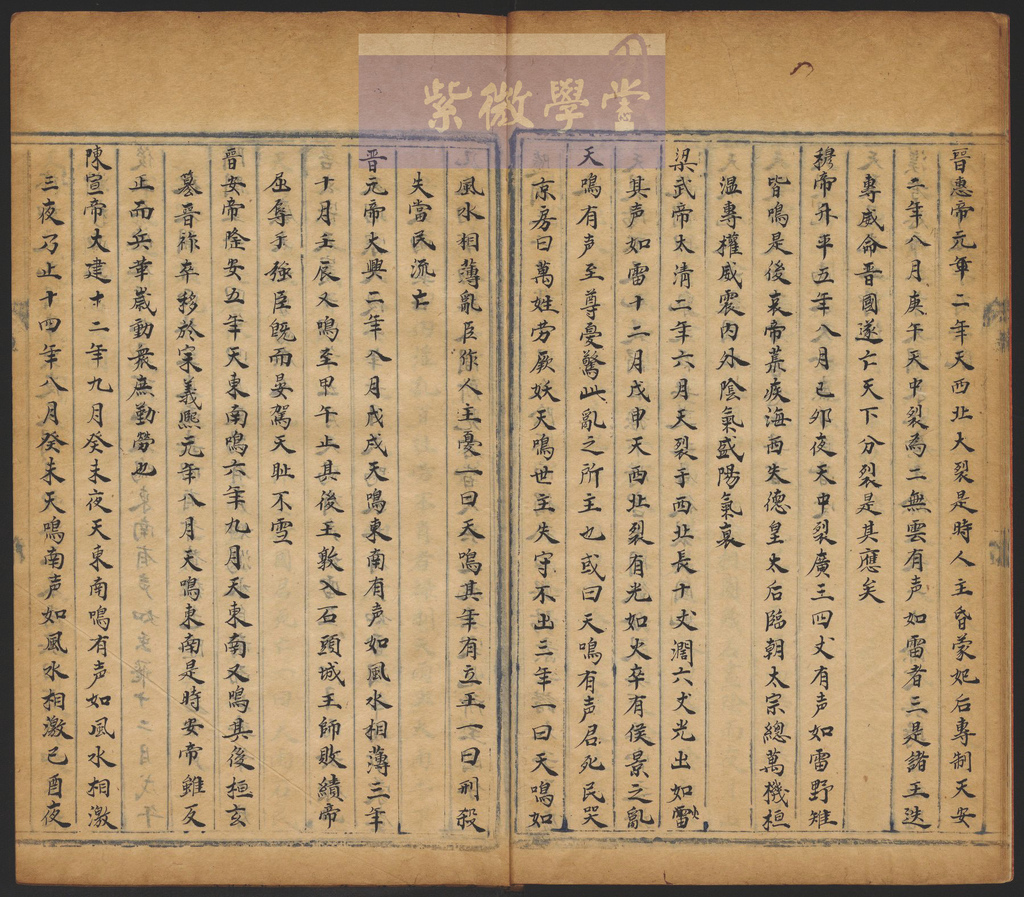 紫微學堂
晉惠帝元年二年天西北大裂是時人主昏蒙妃后專制天安
二年八月庚午天中裂為二無雲有声如雷者三是諸王迭
專威命晉國遂亡天下分裂是其應矣
穆帝升平五年八月已卯夜天中裂廣三四丈有声如雷野雉
皆鳴是後哀帝荒疾海西失德皇太后臨朝太宗總萬機桓
温專權威震内外陰氣盛陽氣衰
梁武帝太清二年六月天裂于西北長十丈濶六丈光出如雷
其声如雷十二月戊申天西北裂有光如火卒有侯景之亂
天鳴有声至尊憂驚此亂之所主也或曰天鳴有声君死民哭
京房曰萬姓劳厥妖天鳴世主失守不出三年一曰天鳴如
風水相薄亂臣作人主憂一曰天鳴其年有立王一曰刑殺
失當民流亡
晋元帝大興二年八月戊戌天鳴東南有声如風水相薄三年
十月壬辰又鳴至甲午止其後王敦入石頭城王師敗績帝
屈辱于强臣旣而晏駕天耻不雪
晋安帝隆安五年天東南鳴六年九月天東南又鳴其後桓玄
篡晋祚卒移於宋義熙元年八月天鳴東南是時安帝雖反
正而兵革歲動衆庶勤勞也
陳宣帝大建十二年九月癸未夜天東南鳴有声如風水相激
三夜乃止十四年八月癸未天鳴南声如風水相激已酉夜